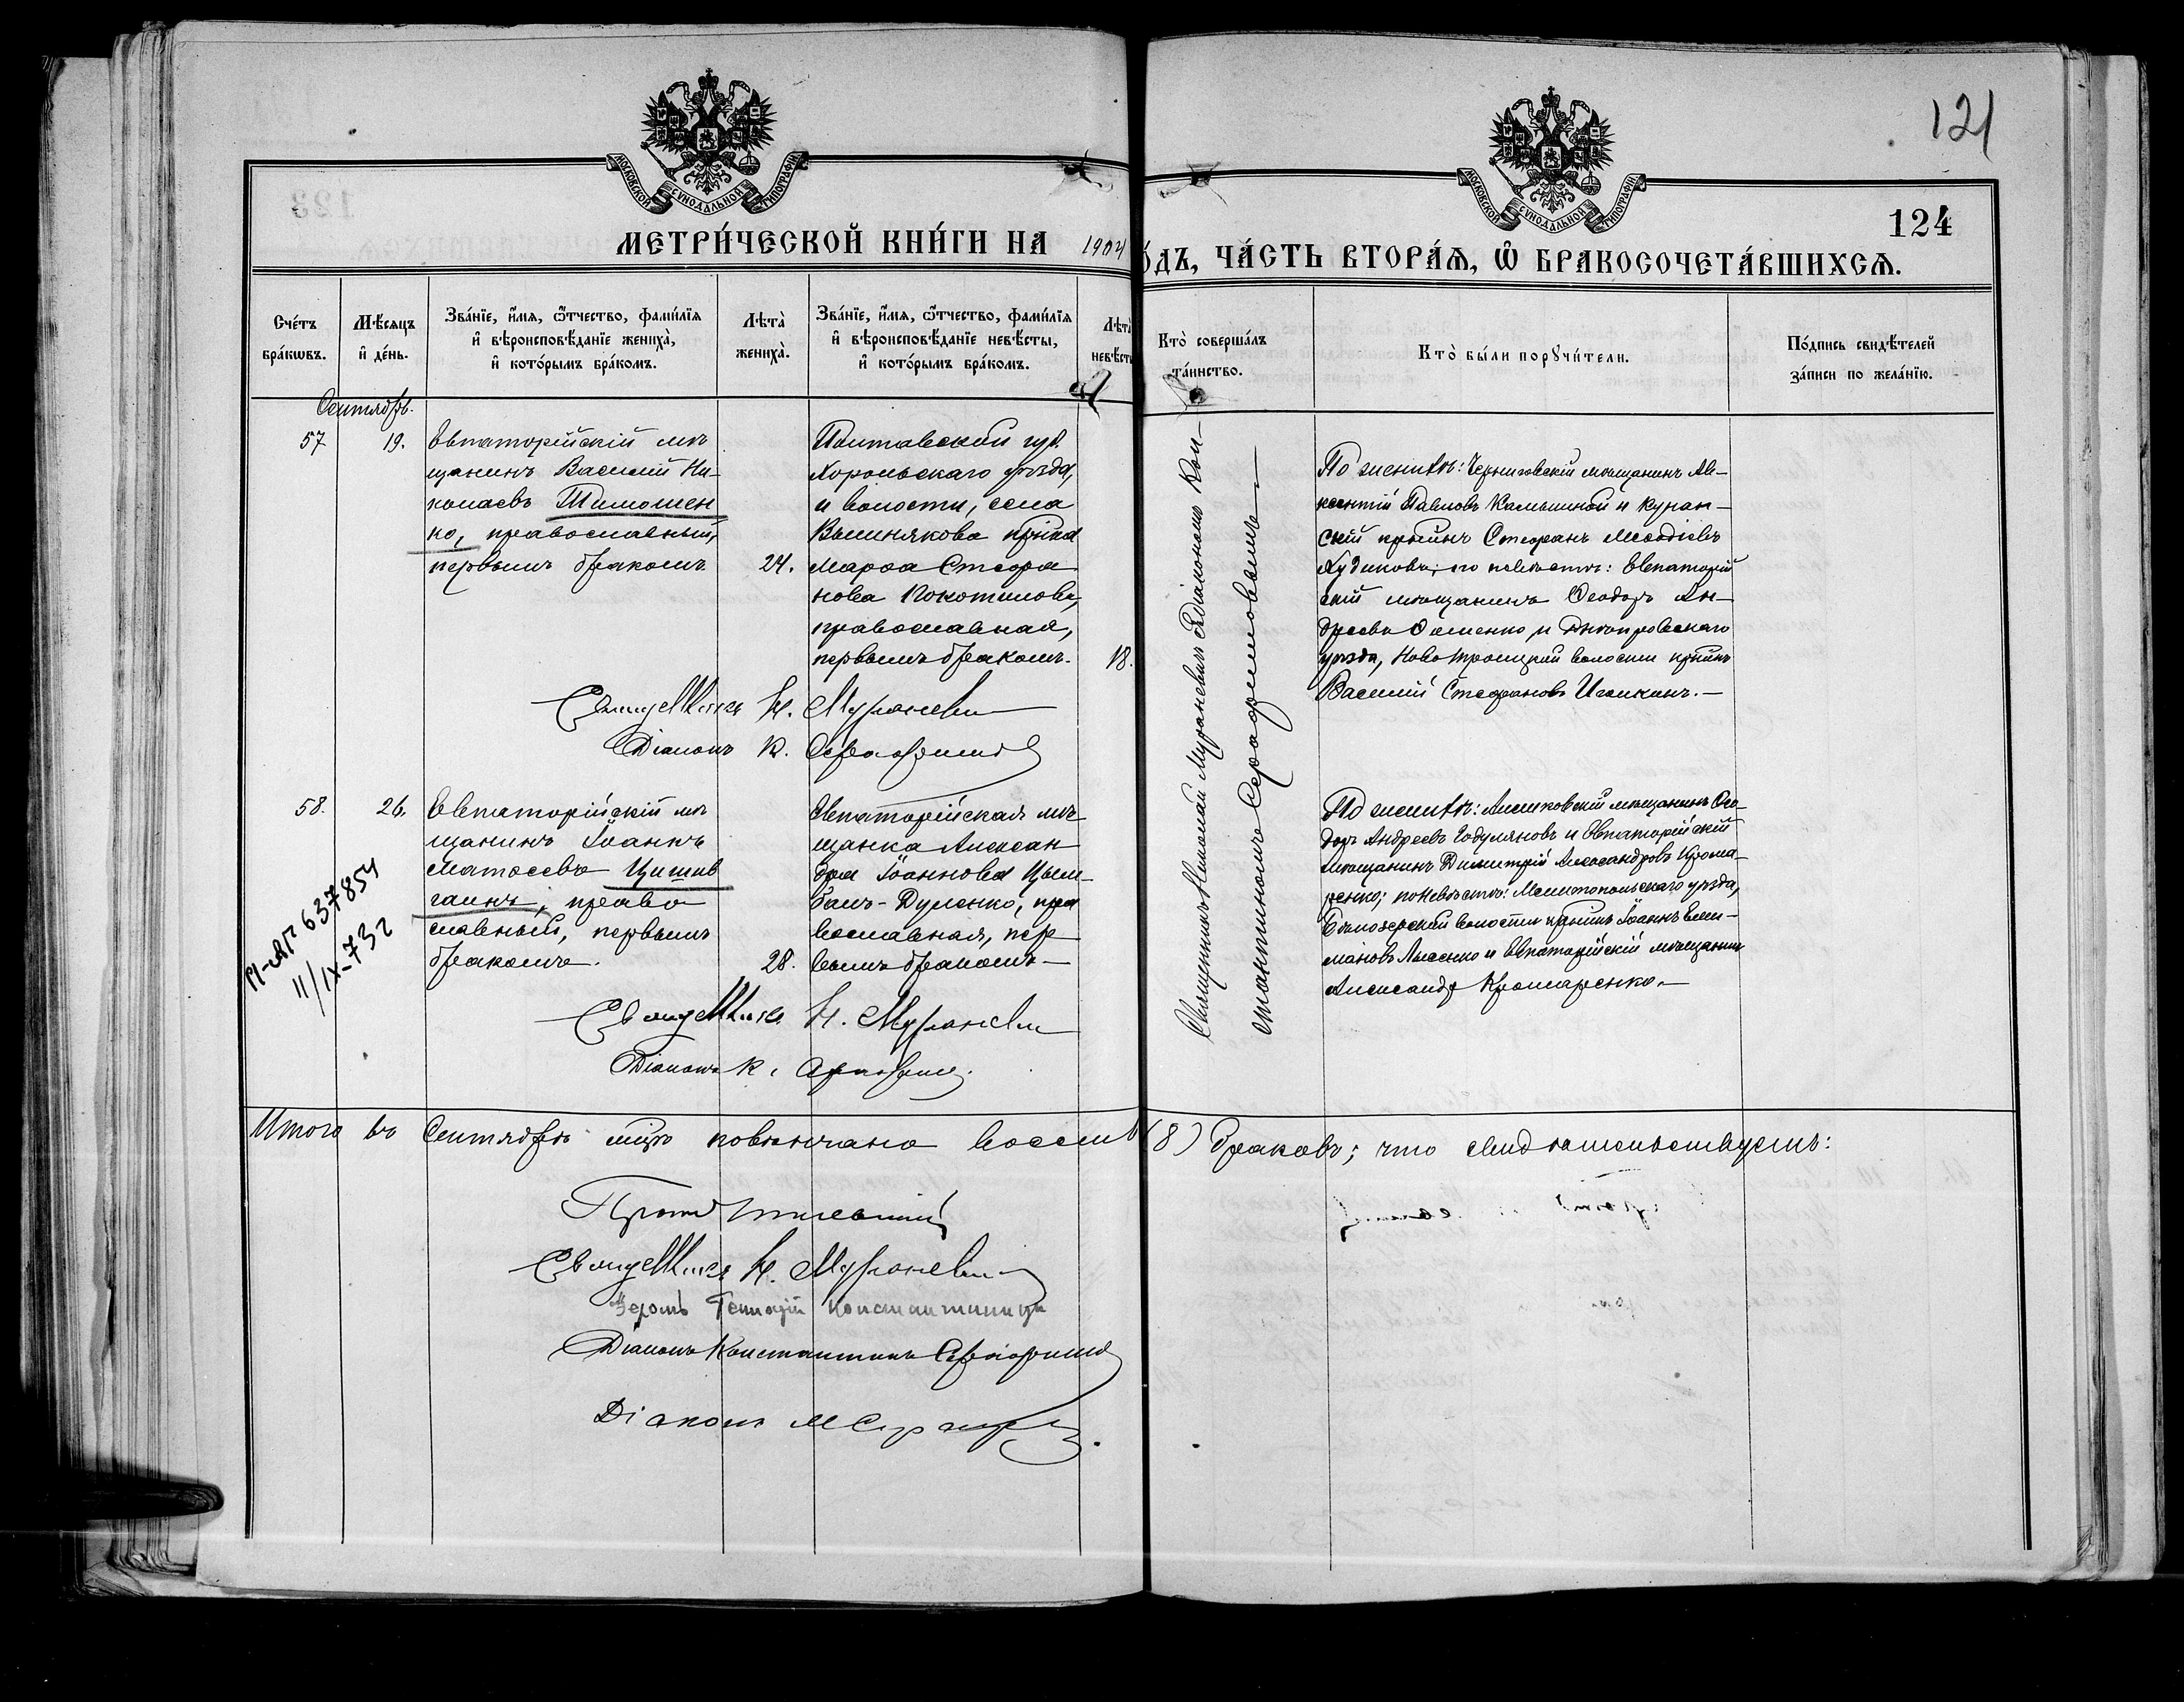 121
124
МОСКОВСКОЙ СѴНОДАЛЬНОЙ ТИПОГРАФІИ
МОСКОВСКОЙ СѴНОДАЛЬНОЙ ТИПОГРАФІИ
МЕТРИ́ЧЕСКОЙ КНИ́ГИ НА 1904
О́ДЪ, ЧА́СТЬ ВТОРА́Ѧ, Ѡ҆ БРАКОСОЧЕТА́ВШИХСѦ.
Сче́тъ бра́кѡвъ.
Мѣ́сяцъ и҆ де́нь.
Зва́нїе, и҆́мѧ, ѻ҆́тчество, фамѝлїѧ
и҆ вѣроисповѣ́данїе жениха̀,
и҆ кото́рымъ бра́комъ.
Лѣта̀ жениха̀.
Зва́нїе, и҆́мѧ, ѻ҆́тчество, фамѝлїѧ
и҆ вѣроисповѣ́данїе невѣ́сты,
и҆ кото́рымъ бра́комъ.
Лѣта̀ невѣ́сты
Кто̀ соверша́лъ та́инство.
Кто̀ бы́ли порꙋчи́тели.
По́дпись свидѣ́телей
за́писи по жела́нїю.
Сентябрь.
57
19.
Евпаторійскій мѣ
щанинъ Василій Ни-
колаевъ Тимошен
ко, православный,
первымъ бракомъ.
24.
Полтавской губ.
Хорольскаго уѣзда,
и волости, села
Вишнякова кр-ка
Марѳа Стефа
нова Кокотилова,
православная,
первымъ бракомъ.
18.
Священникъ Николай Мураневичъ съ діакономъ Кон-
стантиномъ Серафимовымъ
По женихѣ: Черниговскій мѣщанинъ Ав-
ксентій Павловъ Калышной и
скій кр-нинъ Стефанъ Меѳодіевъ
Худиковъ; по невѣстѣ: Евпаторій
скій мѣщанинъ Ѳеодоръ Ан-
дреевъ и Днѣпровскаго
уѣзда, Ново Троицкой волости кр-нинъ
Василій Стефановъ
Священникъ Н. Мураневичъ
Діаконъ К. Серафимовъ
58.
26.
Евпаторійскій мѣ
щанинъ Іоаннъ
Матѳеевъ Цишев
ганъ, право
славный, первымъ
бракомъ.
28.
Евпаторійская мѣ
щанка Алексан
дра Іоаннова Цым
балъ-Дуленко, пра
вославная, пер
вымъ бракомъ
По женихѣ: Алешковскій мѣщанинъ Ѳео-
доръ Андреевъ Годуляновъ и Евпаторійскій
мѣщанинъ Димитрій Александровъ Крома-
ренко; по невѣстѣ: Мелитопольскаго уѣзда,
Бѣлозерской волости кр-нинъ Іоаннъ Еми-
ліановъ Лысенко и Евпаторійскій мѣщанинъ
Александръ Кромаренко.
Священникъ Н. Мураневичъ
Діаконъ К. Серафимовъ
II-АП 637854
11/IX-73г
Итого въ Сентябрѣ мѣсяцѣ повѣнчано восемь (8) браковъ; что свидѣтельствуемъ:
Священникъ Н. Мураневичъ
Діаконъ Константинъ Серафимовъ
Діаконъ